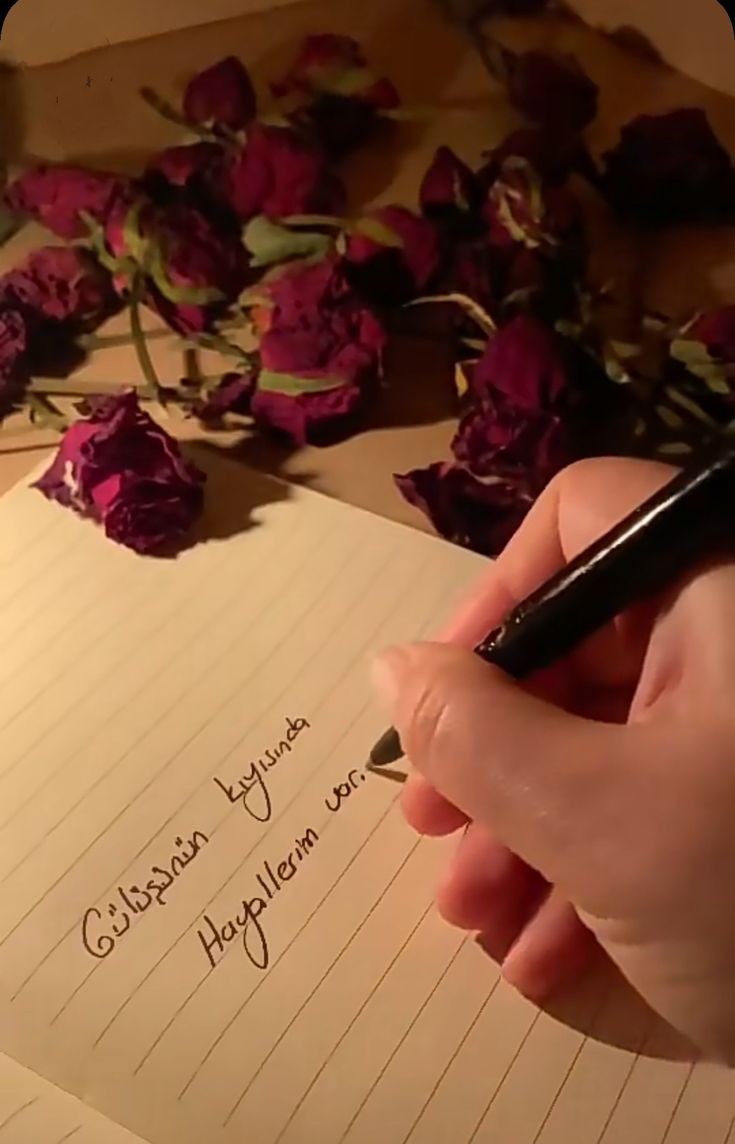 Gülüşünün kıyısında
Hayallerim var.